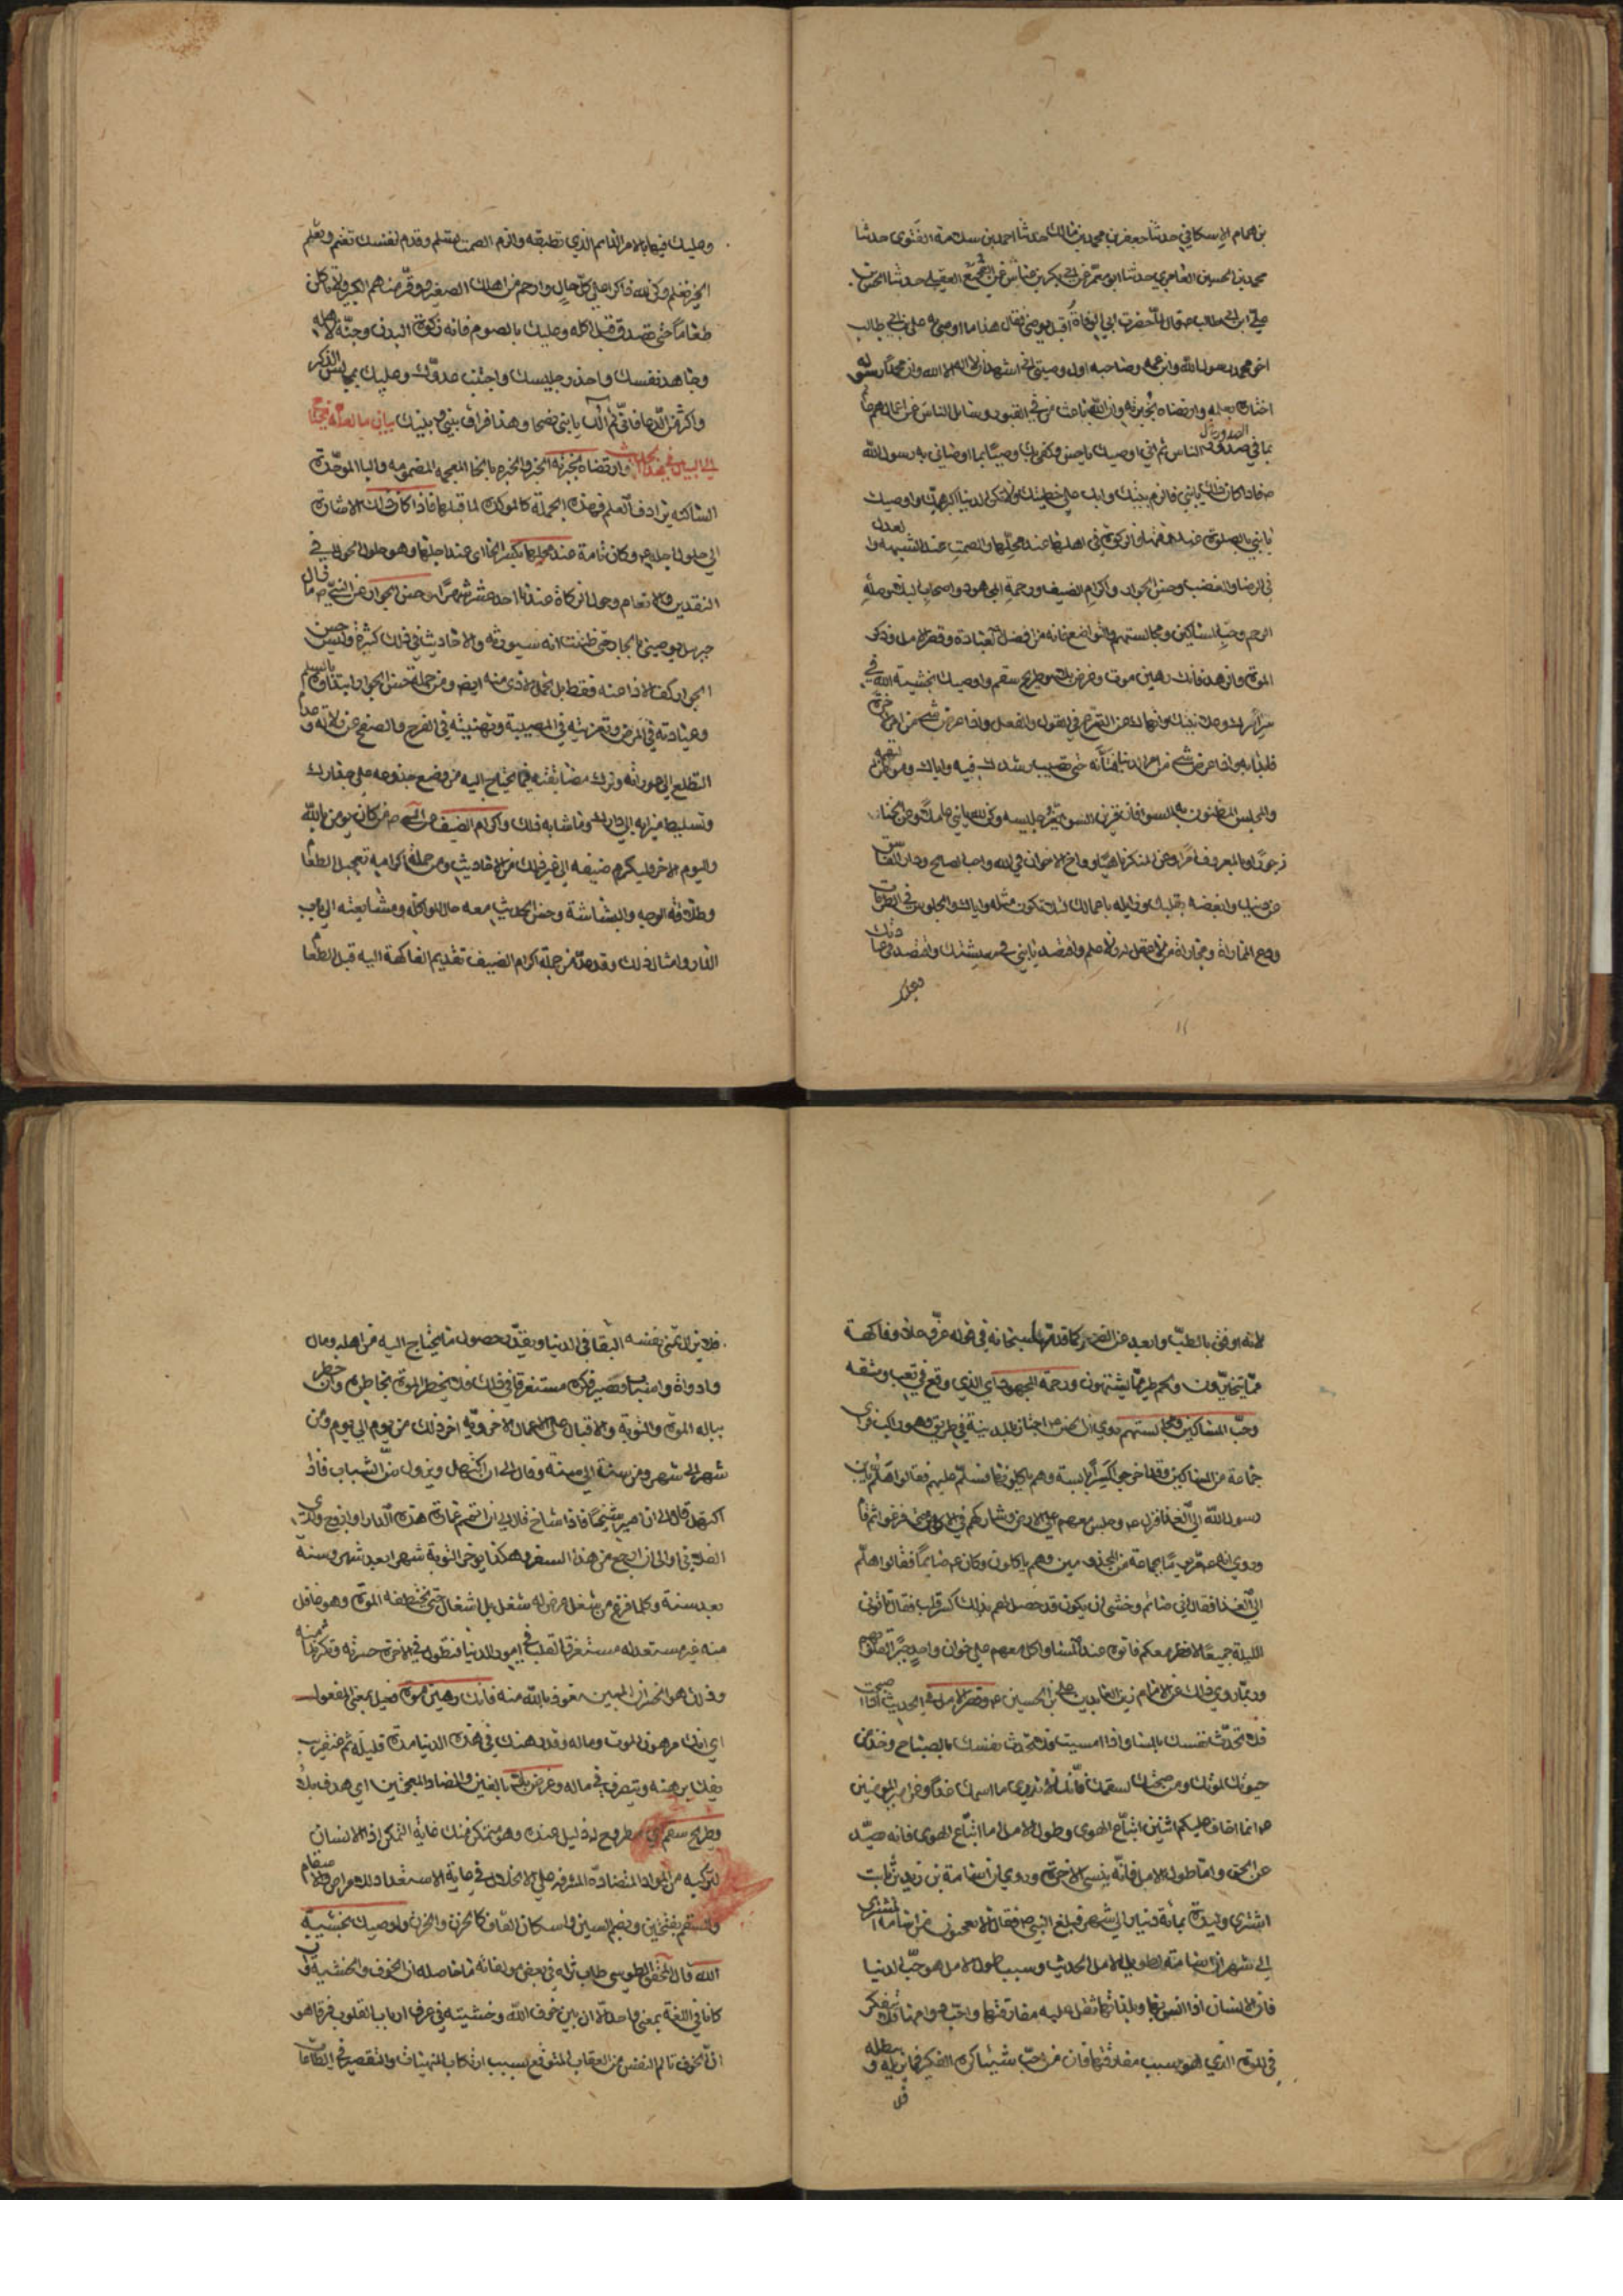 بن همام الاسكافي حدثنا جعفر بن محمد بن مالك حدثنا احمد بن سلامة الغنوي حدثنا
محمد بن الحسين العامري حدثنا ابو معمر عن ابي بكر بن عياش عن الفجيع العقيلي حدثنا الحسن بن
علي ابن ابي طالب ع قال لما حضرت ابي الوفاة اقبل يوصي فقال هذا ما اوصى به علي بن ابي طالب
اخو محمد رسول الله وابن عمه وصاحبه اول وصيتي اني اشهد ان لا اله الا الله وان محمدا رسوله
اختاره بعلمه وارتضاه لخبرته وان الله باعث من في القبور وسائل الناس عن اعمالهم عالم
بما في الصدور ثم اني اوصيك يا حسن وكفى بك وصيا بما اوصاني به رسول الله
ص فاذا كان ذلك يا بني فالزم بيتك وابك على خطيئتك ولا تكن الدنيا اكبر همك واوصيك
يا بني بالصلوة عند وقتها والزكوة في اهلها عند محلها والصمت عند الشبهة والعدل
في الرضا والغضب وحسن الجوار واكرام الضيف ورحمة المجهود واصحاب البلاء وصلة
الرحم وحب المساكين ومجالستهم والتواضع فانه من افضل العبادة وقصر الامل وذكر
الموت والزهد فانك رهين موت وغرض بلاء وطريح سقم واوصيك بخشية الله في
سر امرك وعلانيتك وانهاك عن التسرع في القول والفعل واذا عرض شيء من امر الاخرة
فابدا به واذا عرض شيء من امر الدنيا فتأنه حتى تصيب رشدك فيه واياك ومواطن التهمة
والمجلس المظنون به السوء فان قرين السوء يغير جليسه وكن لله يا بني عاملا وعن الخنا
زجورا وبالمعروف آمرا وعن المنكر ناهيا وواخ الاخوان في الله واحب الصالح ودار الفاسق
عن دينك وابغضه بقلبك وزايله باعمالك لئلا تكون مثله واياك والجلوس في الطرقات
ودع المماراة ومجاراة من لا عقل له ولا علم واقتصد يا بني في معيشتك واقتصد في عبادتك
وعليك
وعليك فيها بالامر الدائم الذي تطيقه والزم الصمت تسلم وقدم لنفسك تغنم وتعلم
الخير تعلم وكن لله ذاكرا على كل حال وارحم من اهلك الصغير ووقر منهم الكبير ولا تاكلن
طعاما حتى تصدق قبل اكله وعليك بالصوم فانه زكوة البدن وجنة لاهله
وجاهد نفسك واحذر جليسك واجتنب عدوك وعليك بمجالس الذكر
واكثر من الدعا فاني لم آلك يا بني نصحا وهذا فراق بيني وبينك بيان ما لعله يحتاج
الى البيان في هذا الحديث وارتضاه لخبرته الخبر والخبره بالخا المعجمه المضمومه والبا الموحدة
الساكنة يرادف العلم فهذه الجملة كالموكدة لما قبلها فاذا كان ذلك الاشارة
الى حلول اجله ع وكان تامة عند محلها بكسر الحا اى عند اجلها وهو حلول الحول في
النقدين والانعام وحول الزكاة عندنا احد عشر شهرا وحسن الجوار عن النبي ص ما زال
جبريل يوصيني بالجار حتى ظننت انه سيورثه والاحاديث في ذلك كثيرة وليس حسن
الجوار كف الاذا عنه فقط بل تحمل الاذى منه ايضا ومن جملة حسن الجوار ابتداؤه بالسلم
وعيادته في المرض وتعزيته في المصيبة وتهنيته في الفرح والصفح عن زلاته وعدم
التطلع الى عوراته وترك مضايقته فيما يحتاج اليه من وضع جذوعه على جدارك
وتسليط ميزابه الى دارك وما شابه ذلك واكرام الضيف عن النبي ص من كان يومن بالله
واليوم الاخر فليكرم ضيفه الى غير ذلك من الاحاديث ومن جملة اكرامه تعجيل الطعام
وطلاقة الوجه والبشاشة وحسن الحديث معه حال المواكلة ومشايعته الى باب
الدار وامثال ذلك وقد عد من جملة اكرام الضيف تقديم الفاكهة اليه قبل الطعام
لانه اوفق بالطب وابعد عن الضرر كما قدمها سبحانه في قوله عز وعلا وفاكهة
مما يتخيرون ولحم طير مما يشتهون ورحمة المجهود اي الذي وقع في تعب ومشقه
وحب المساكين ومجالستهم روي ان الحسن ع اجتاز بالمدينة في طريق وهو راكب فراى
جماعة من المساكين وقد اخرجوا كسرا يابسة وهم ياكلونها فسلم عليهم فقالوا هلم يا بن
رسول الله الى الغدا فنزل ع وجلس معهم على الارض وشاركهم في الاكل حتى فرغوا ثم قام
وروي انه ع مر يوما بجماعة من المجذومين وهم ياكلون وكان ع صائما فقالوا هلم
الى الغدا فقال اني صائم وخشي ان يكون قد حصل لهم بذلك كسر قلب فقال تاتوني
الليلة جميعا لافطر معكم فاتوه عند المسا واكل معهم على خوان واحد جبرا لقلوبهم
وربما روي ذلك عن الامام زين العابدين علي بن الحسين ع وقصر الامل في الحديث اذا اصبحت
فلا تحدث نفسك بالمسا واذا امسيت فلا تحدث نفسك بالصباح وخذ من
حيوتك لموتك ومن صحتك لسقمك فانك لا تدري ما اسمك غدا وعن امير المومنين
ع انما اخاف عليكم اثنين اتباع الهوى وطول الامل اما اتباع الهوى فانه يصد
عن الحق واما طول الامل فانه ينسي الاخرة وروي ان اسامة بن زيد بن ثابت
اشترى وليدة بمائة دينار الى شهر فبلغ النبي ص فقال الا تعجبون من اسامة المشتري
الى شهر ان اسامة لطويل الامل الحديث وسبب طول الامل هو حب الدنيا
فان الانسان اذا انس بها وبلذاتها ثقل عليه مفارقتها واحب دوامها فلا يتفكر
في الموت الذي هو سبب مفارقتها فان من احب شيئا كره الفكر فيما يزيله ويبطله
فلا
فلا يزال تمنى نفسه البقا في الدنيا ويقدر حصول ما يحتاج اليه من اهل ومال
وادواة واسباب ويصير فكره مستغرقا في ذلك فلا يخطر الموت بخاطره وان خطر
بباله الموت والتوبة والاقبال على الاعمال الاخروية اخر ذلك من يوم الى يوم ومن
شهر الى شهر ومن سنة الى سنة وقال الى ان اكتهل ويزول سن الشباب فاذا
اكتهل قال الى ان اصير شيخا فاذا شاخ قال الى ان اتمم عمارة هذه الدار او ازوج ولدي
الفلاني او الى ان ارجع من هذا السفر وهكذا يوخر التوبة شهرا بعد شهر وسنة
بعد سنة وكلما فرغ من شغل عرض له شغل بل اشغال حتى يختطفه الموت وهو غافل
عنه غير مستعد له مستغرق القلب في امور الدنيا فتطول في الاخرة حسرته وتكثر ندامته
وذلك هو الخسران المبين نعوذ بالله منه فانك رهين موت فعيل بمعنى المفعول
اي انك مرهون الموت وماله وقد رهنك في هذه الدنيا مدة قليلة ثم عنقريب
يفك رهنه ويتصرف في ماله وغرض بلاء بالغين والضاد المعجمتين اي هدف بلاء
وطريح سقم اي مطروح له ذليل عنده وهو متمكن منك غاية التمكن اذ الانسان
لتركبه من المواد المتضادة المشرفه على الانحلال في غاية الاستعداد للامراض والاسقام
والسقم بفتحتين وبضم السين واسكان القاف كالحزن والحزن واوصيك بخشية
الله قال المحقق الطوسي طاب ثراه في بعض مولفاته ما حاصله ان الخوف والخشية وان
كانا في اللغة بمعنى واحد الا ان بين خوف الله وخشيته في عرف ارباب القلوب فرقا هو
ان الخوف تالم النفس من العقاب المتوقع بسبب ارتكاب المنهيات والتقصير في الطاعات